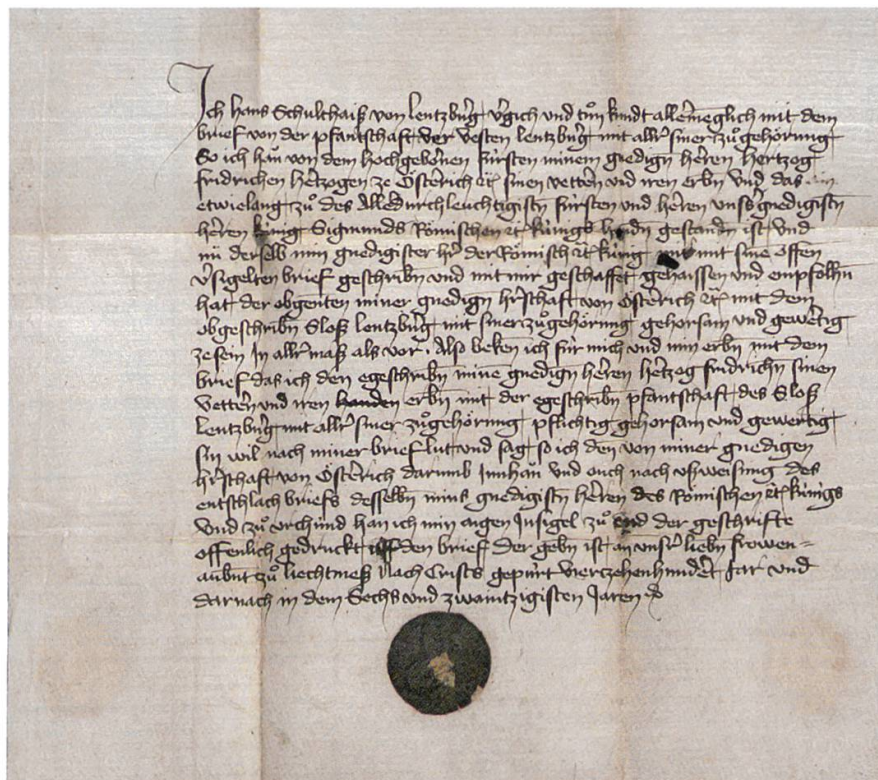 Ich hans Schulthaiß von lentzburg vgich und tůn kundt allermeglich mit dem
brief von der pfantschaft der vesten lentzburg mit allr siner zůgehörung
So ich han von dem hochgebornen fürsten minem gnedign herren hertzog
fridrichen hertzogen ze Österich etc sinen vettern und iren erbn Und das
etwielang zů des Alledurchleuchtigistn fürsten und herren unsers gnedigistn
herren künig Sigmunds Römischen etc künigs handn gestandn ist Und
nu derselb min gnedigister hr der Römisch etc künig mit sine offen
vsigelten brief geschribn und mit mir geschaffet gehaissen und empfolhn
hat der obgenten miner gnedign hrschaft von Österich etc mit dem
obgeschribn Sloß lentzburg mit siner zůgehörung gehorsam und gewertig
zesein In allr maß als vor. Also beken ich für mich und min erbn mit dem
brief das ich den egeschribn mine gnedign herren hertzog fridrichn sinen
vettern und iren handen erbn mit der egeschribn pfantschaft des Sloß
lentzburg mit allr siner zůgehörung pflichtig gehorsam und gewertig
sin wil nach miner brief lut und sag so ich den von miner gnedigen
hrschaft von Österich darumb Innhan und ouch nach ußweisung des
entschlach briefs desselbn mins gnedigistn herren des Römischen etc künigs
Und zů vrchünd han ich min aigen Insigel zů end der geschrifte
offenlich gedruckt uff den brief der gebn ist an unsr liebn frowen=
aubnt zů liechtmeß Nach Crists gepürt vierzehenhundert Jar und
darnach in dem Sechs und zwaintzigisten Jaren